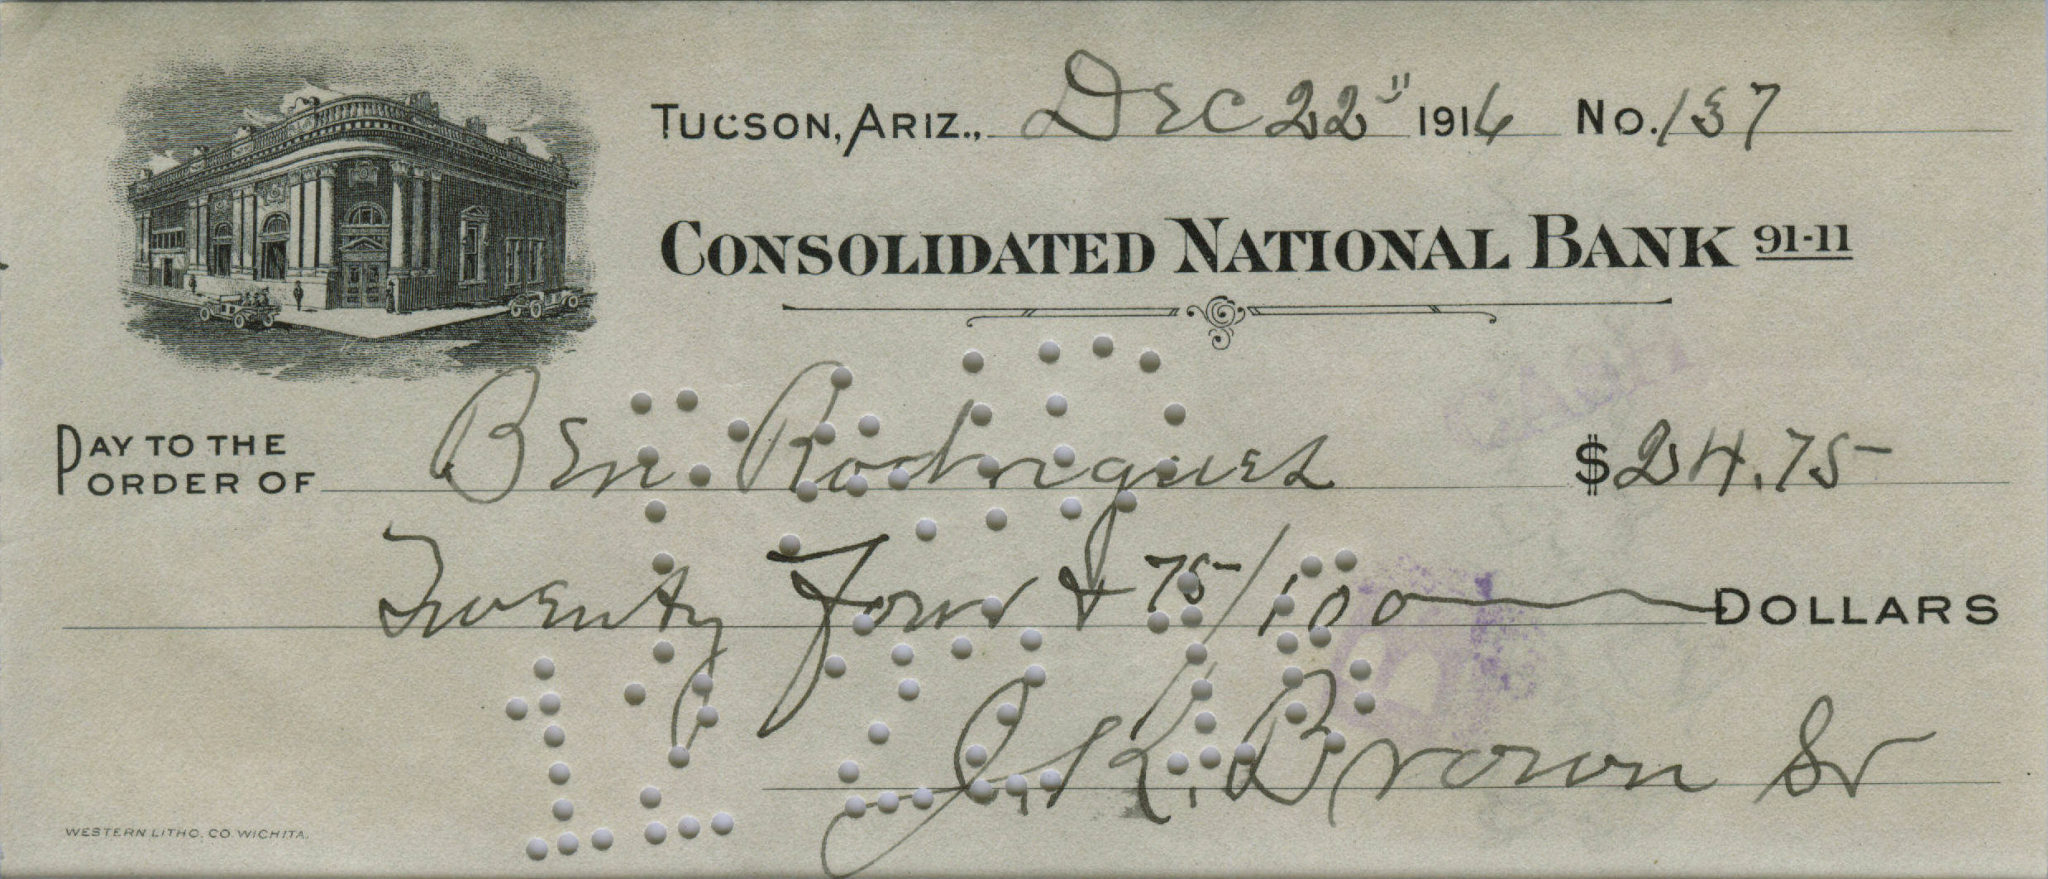 TUCSON, ARIZ., Dec 22" 1916 No. 137
CONSOLIDATED NATIONAL BANK 91-11
PAY TO THE ORDER OF Ben. Rodrigues $24.75
Twenty Four & 75/100 DOLLARS
J. K. Brown Sr
WESTERN LITHO. CO. WICHITA.
PAID
CASH